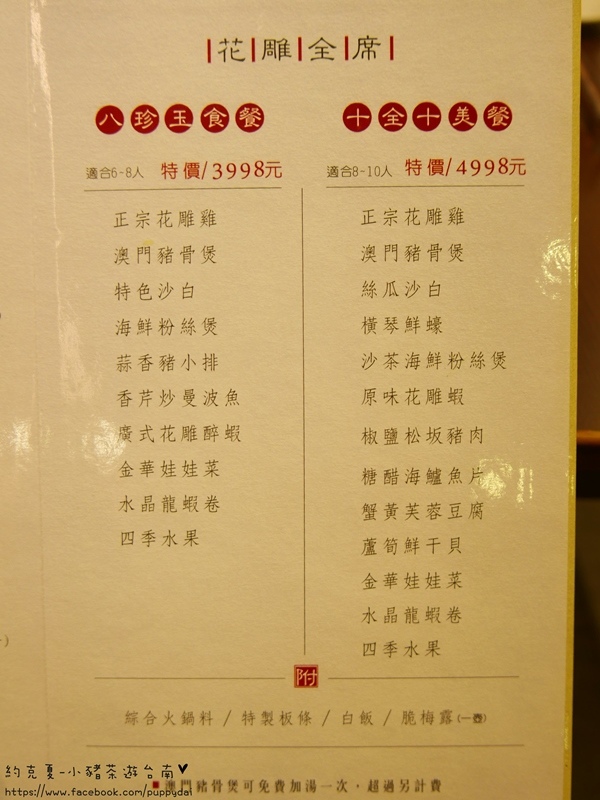 花雕全席
八珍玉食餐
適合6-8人 特價/3998元
正宗花雕雞
澳門豬骨煲
特色沙白
海鮮粉絲煲
蒜香豬小排
香芹炒曼波魚
廣式花雕醉蝦
金華娃娃菜
水晶龍蝦卷
四季水果
十全十美餐
適合8-10人 特價/4998元
正宗花雕雞
澳門豬骨煲
絲瓜沙白
橫琴鮮蠔
沙茶海鮮粉絲煲
原味花雕蝦
椒鹽松坂豬肉
糖醋海鱸魚片
蟹黃芙蓉豆腐
蘆筍鮮干貝
金華娃娃菜
水晶龍蝦卷
四季水果
附
綜合火鍋料 / 特製板條 / 白飯 / 脆梅露(一壺)
澳門豬骨煲可免費加湯一次，超過另計費
約克夏-小豬茶遊台南♥
https://www.facebook.com/puppydai